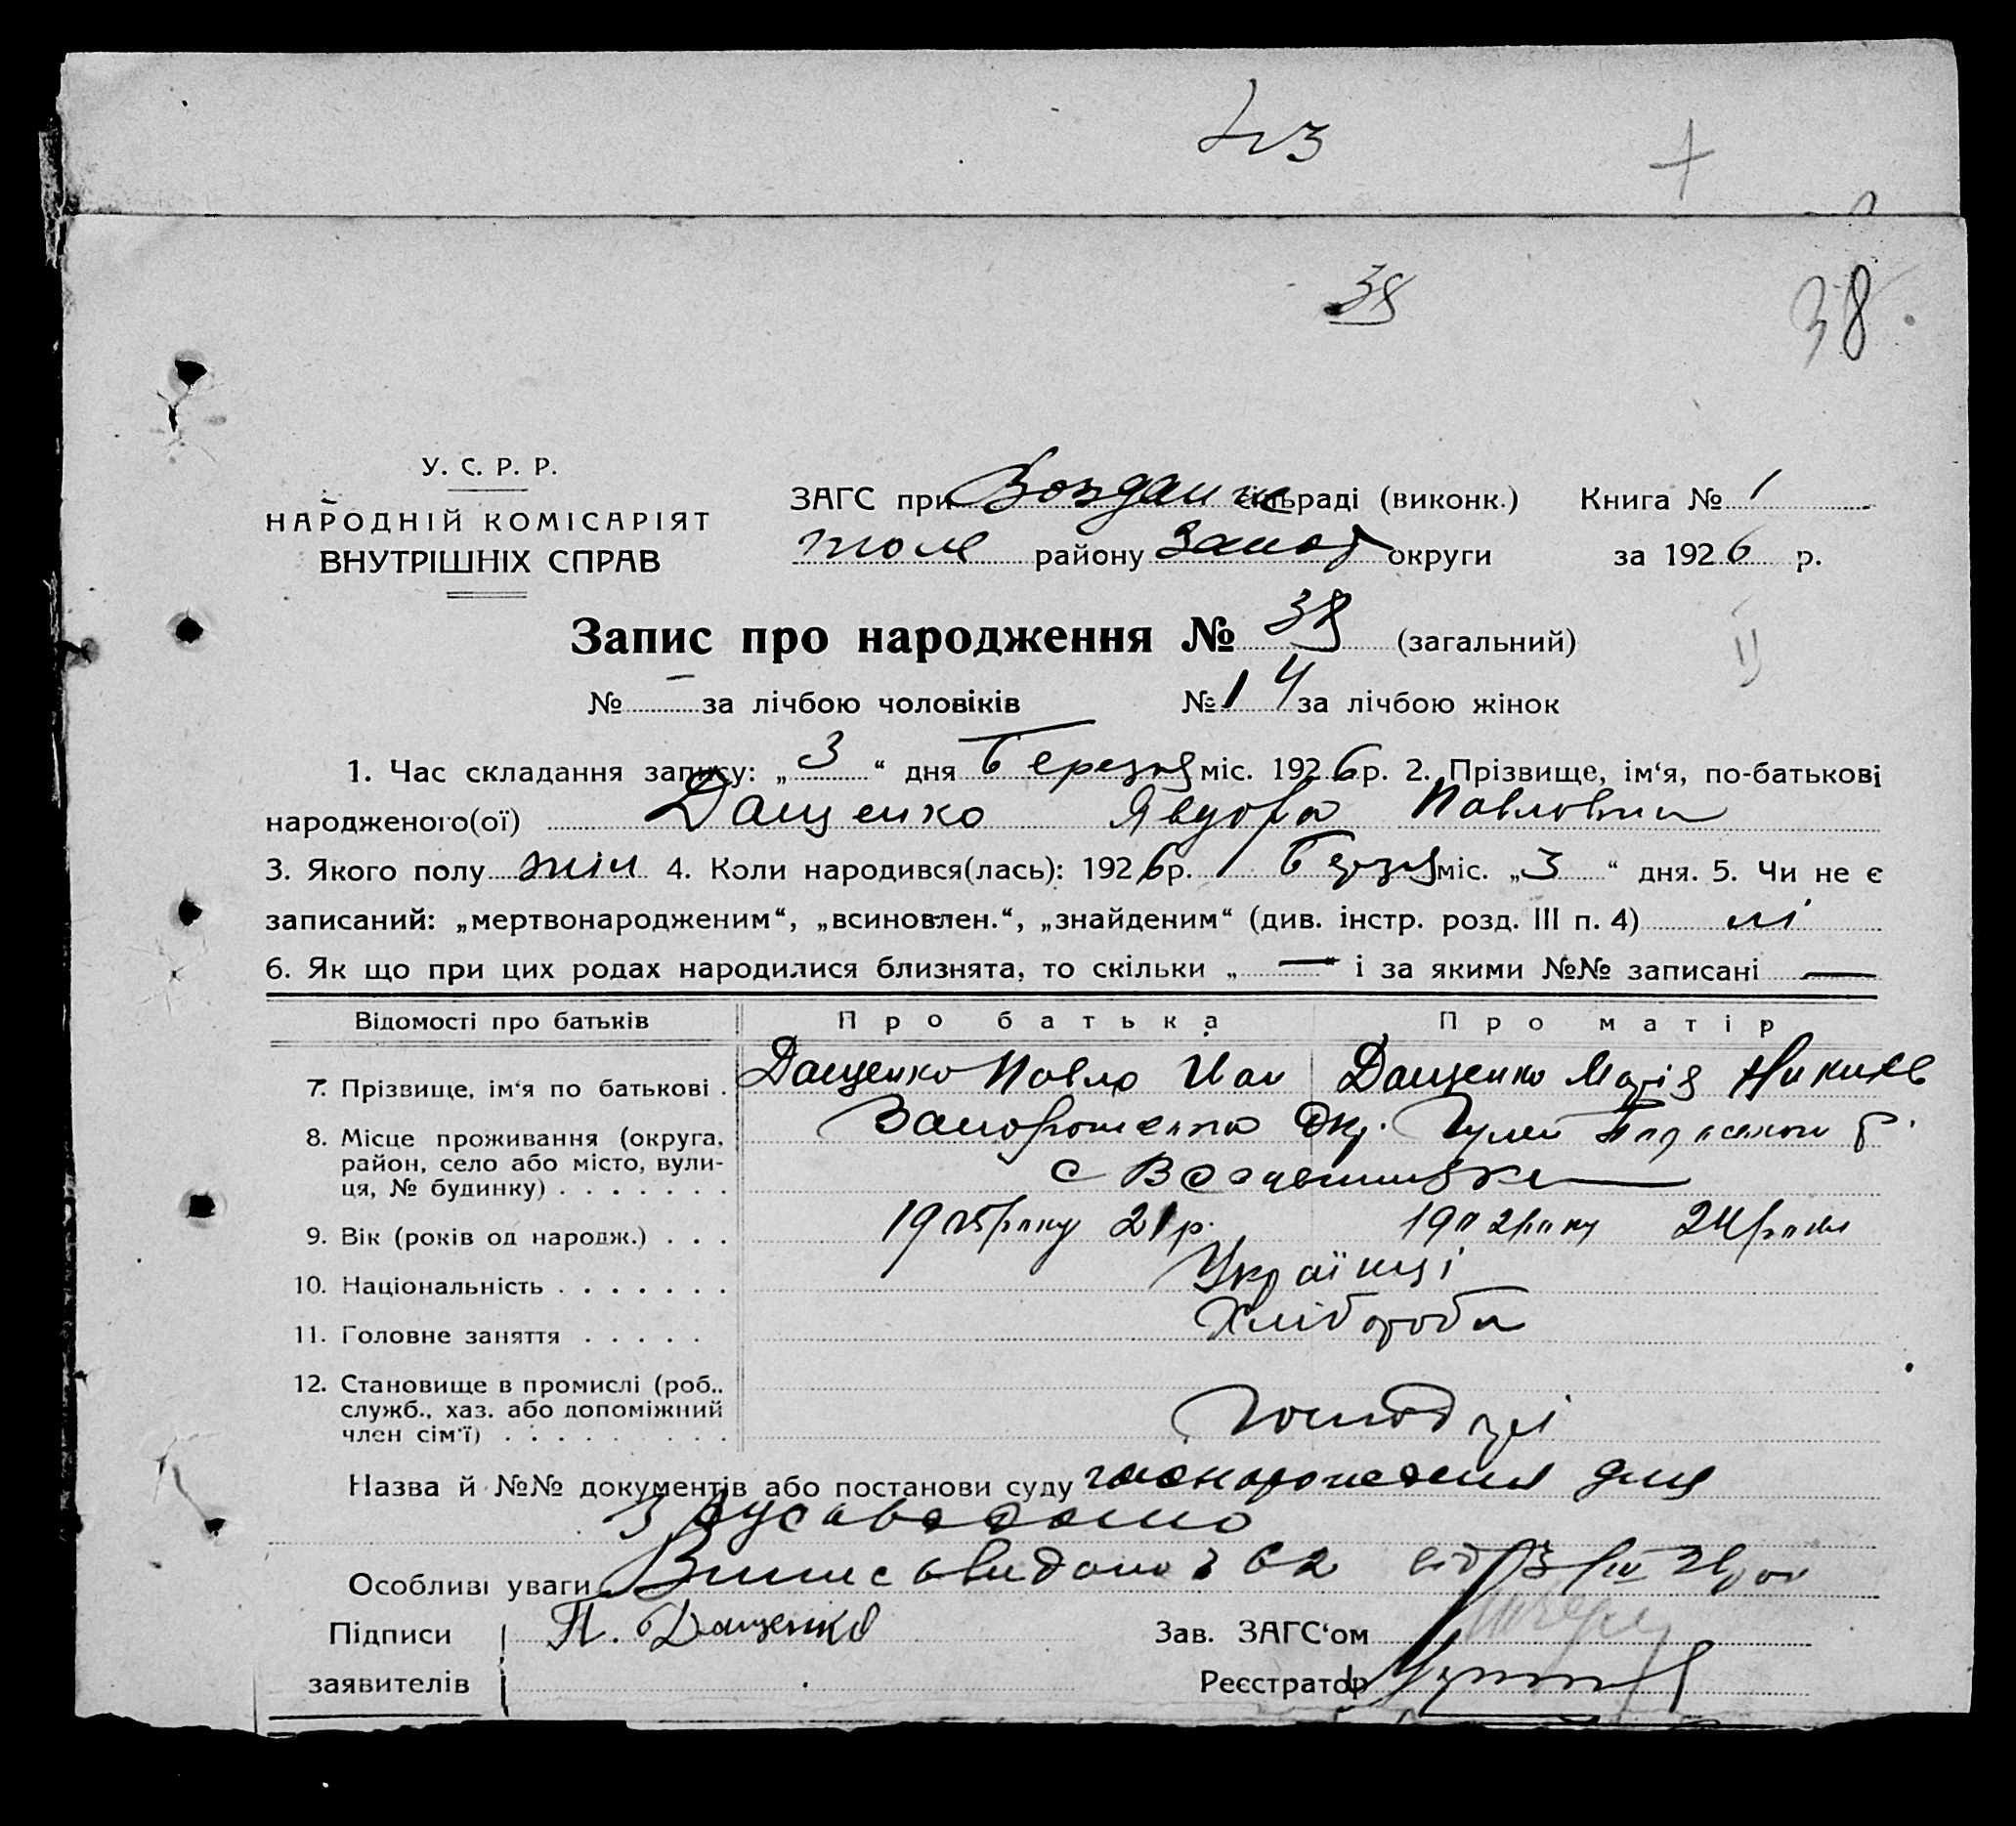 43
+
38
38
У. С. Р. Р.
НАРОДНІЙ КОМІСАРІЯТ
ВНУТРІШНІХ СПРАВ
ЗАГС при сільраді (виконк.) Книга № 1
району Запор округи за 1926 р.
Запис про народження № 38 (загальний)
№ — за лічбою чоловіків № 14 за лічбою жінок
1. Час складання запису: „3“ дня Березня міс. 1926 р. 2. Прізвище, ім‘я, по-батькові
народженого(ої) Дащенко Явдора Павловна
3. Якого полу жін 4. Коли народився(лась): 1926 р. Березня міс. „3“ дня. 5. Чи не є
записаний: „мертвонародженим“, „всиновлен.“, „знайденим“ (див. інстр. розд. III п. 4) ні
6. Як що при цих родах народилися близнята, то скільки „—“ і за якими №№ записані —
Відомості про батьків Про батька Про матір
7. Прізвище, ім‘я по батькові . Дащенко Павло Иван Дащенко Марія
8. Місце проживання (округа, Окр.
район, село або місто, вули- с
ця, № будинку) . . . . . . .
9. Вік (років од народж.) . . . 1905 року 21 р. 1902 року 24 роки
10. Національність . . . . . . . Українці
11. Головне заняття . . . . . Хлібороби
12. Становище в промислі (роб.,
служб., хаз. або допоміжний
член сім‘ї) . . . . . . . .
Назва й №№ документів або постанови суду
Особливі уваги 62 від 3/III 26 рок
Підписи П. Дащенко Зав. ЗАГС‘ом
заявителів Реєстратор